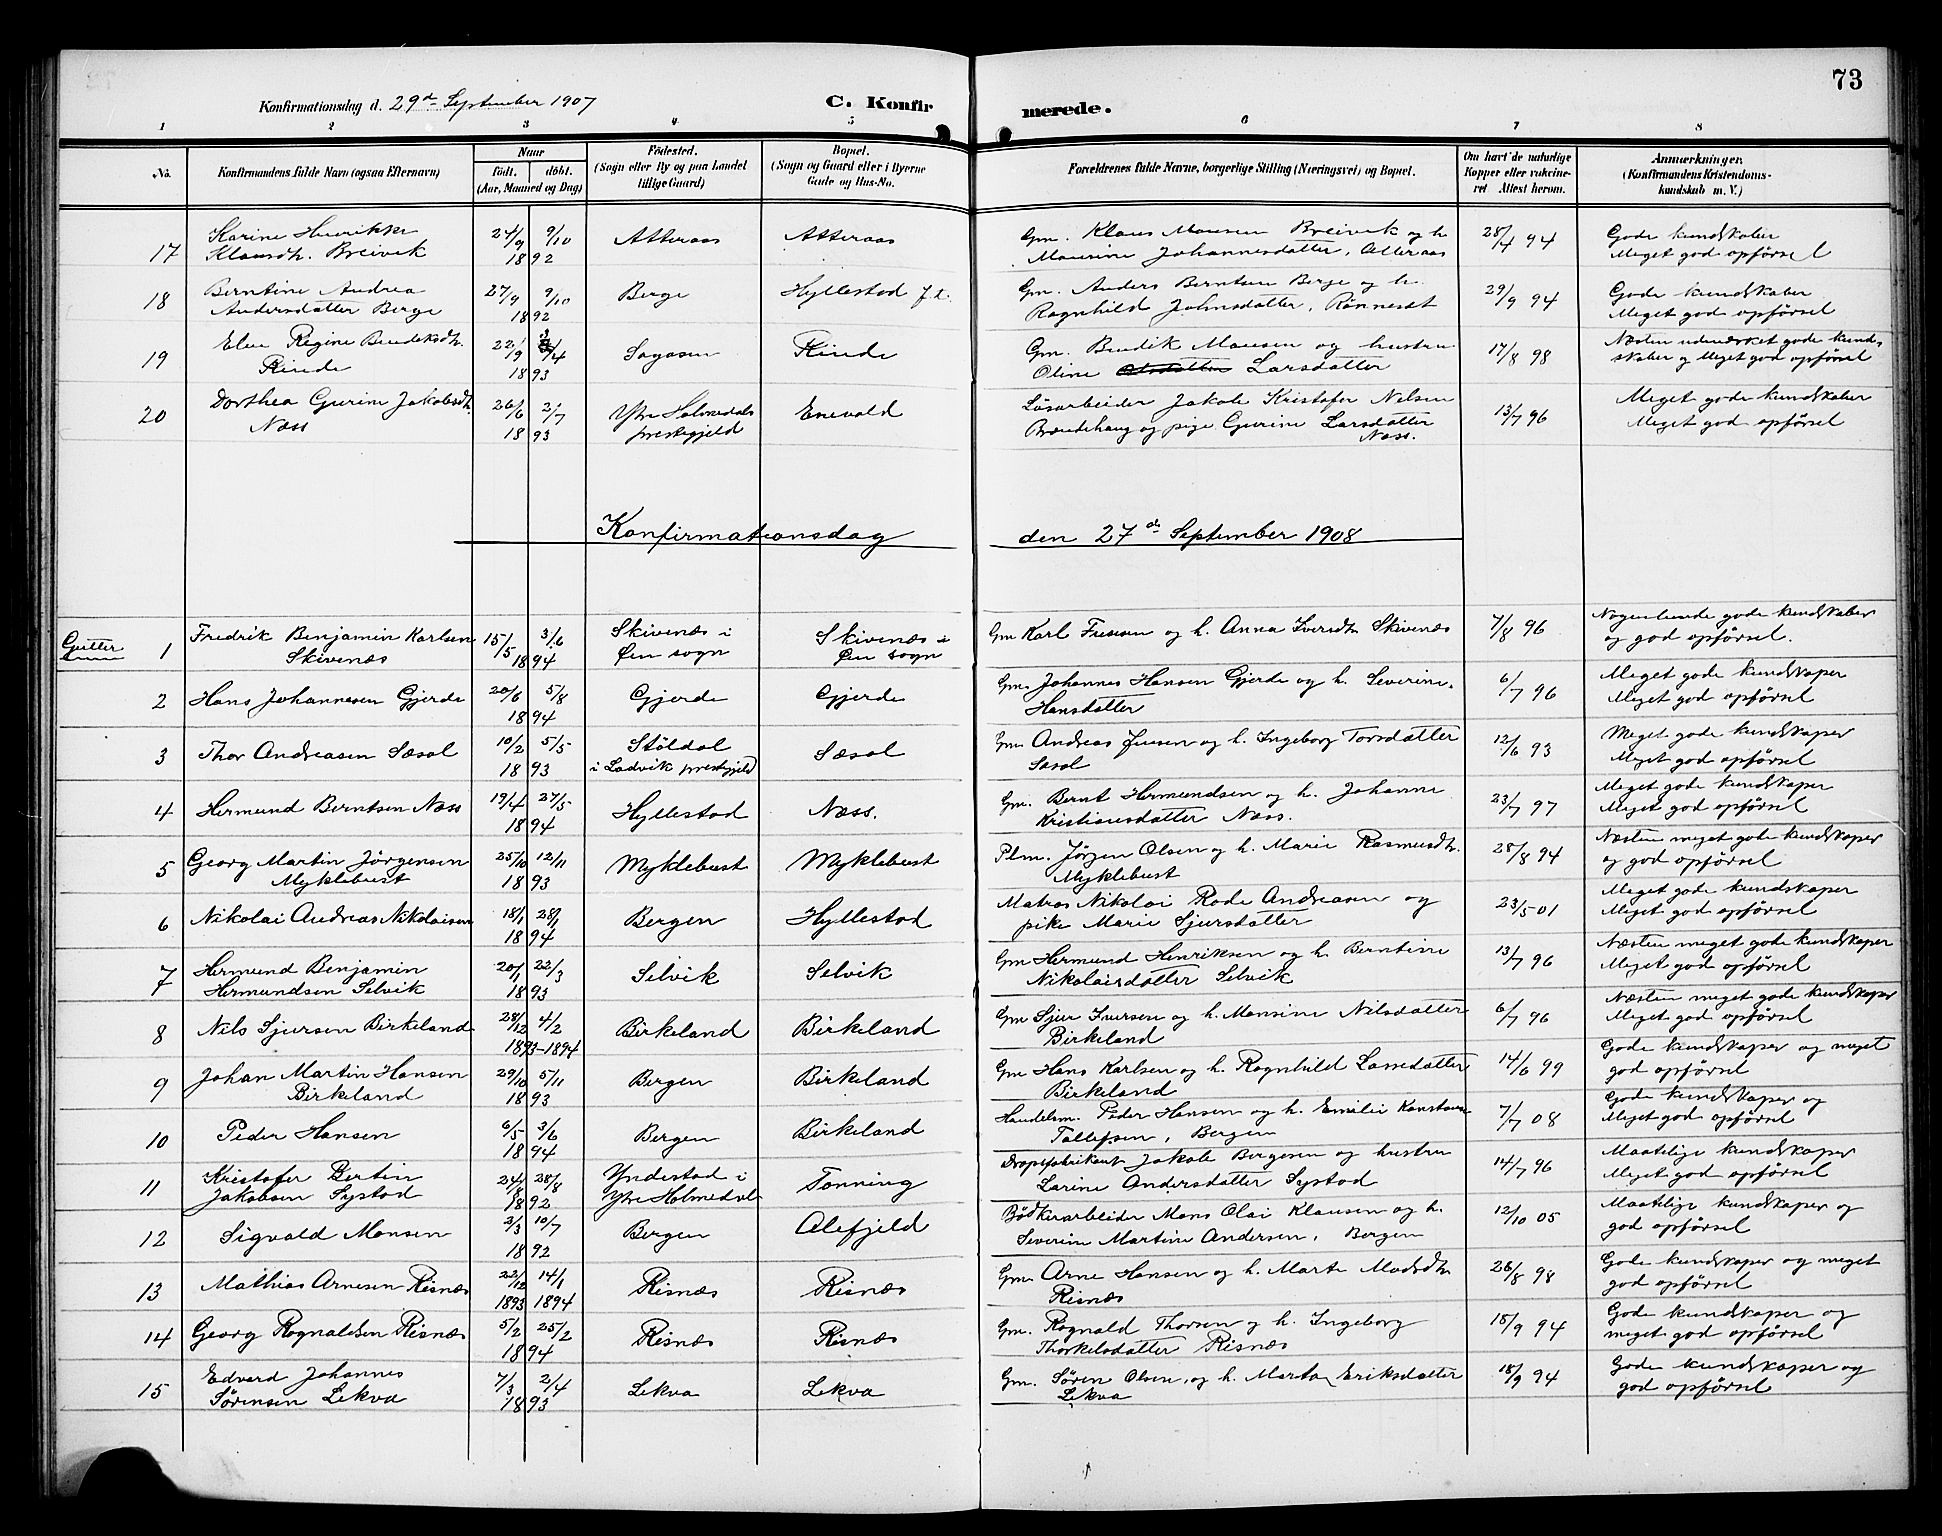 73
Konfirmationsdag d. 29de September 1907
C. Konfirmerede.
1 2 3 4 5 6 7 8
No.
Konfirmandens fulde Navn (ogsaa Efternavn)
Naar
født. døbt.
(Aar, Maaned og Dag)
Fødested.
(Sogn eller By og paa Landet
tillige Gaard)
Bopæl.
(Sogn og Gaard eller i Byerne
Gade og Hus-No.
Forældrenes fulde Navne, borgerlige Stilling (Næringsvei) og Bopæl.
Om havt de naturlige
Kopper eller vakcine-
ret Attest herom.
Anmærkninger.
(Konfirmandens Kristendoms-
kundskab m. V.)
17 Karine Henrikke 24/9 9/10 Atteraas Atteraas Gm. Klaus Monsen Breivik og h. 28/4 94 Gode kundskaber
Klausdtr. Breivik 1892 Monsine Johannesdatter, Atteraas Meget god opførsel
18 Berntine Andrea 27/9 9/10 Berge Hyllestad f.t. Gm. Anders Berntsen Berge og h. 29/9 94 Gode kundskaber
Andersdatter Berge 1892 Ragnhild Johnsdatter, Rønneset Meget god opførsel
19 Elen Regine Bendiksdtr. 22/9 3/4 Sagosen Rinde Gm. Bendik Monsen og hustru 17/8 98 Næsten udmærket gode kund-
Rinde 1893 Oline Larsdatter skaber og Meget god opførsel
20 Dorthea Gurine Jakobsdtr. 26/6 2/7 Ytre Holmedals Enevald Løsarbeider Jakob Kristofer Nilsen 13/7 96 Meget gode kundskaber
Næss 1893 prestegjeld Brændehaug og pige Gurine Larsdatter Meget god opførsel
Næss.
Konfirmationsdag den 27de September 1908
Gutter 1 Fredrik Benjamin Karlsen 15/5 3/6 Skivenæs i Skivenæs i Gm Karl Fransen og h. Anna Iversdtr Skivenæs 7/8 96 Nogenlunde gode kundskaber
Skivenæs 1894 Øen sogn Øen sogn og god opførsel.
2 Hans Johannesen Gjerde 20/6 5/8 Gjerde Gjerde Gm. Johannes Hansen Gjerde og h. Severine 6/7 96 Meget gode kundskaper
1894 Hansdatter Meget god opførsel
3 Thor Andreasen Sæsol 10/2 5/5 Støldal Sæsol Gm. Andreas Jensen og h. Ingeborg Torsdatter 12/6 93 Meget gode kundskaper
1893 i Ladvik prestegjeld Sæsol Meget god opførsel
4 Hermund Berntsen Næss 19/4 27/5 Hyllestad Næss. Gm. Bernt Hermundsen og h. Johanne 23/7 97 Meget gode kundskaper
1894 Kristiansdatter Næss. Meget god opførsel
5 Georg Martin Jørgensen 25/10 12/11 Myklebust Myklebust Plm. Jørgen Olsen og h. Marie Rasmusdtr. 28/8 94 Næsten meget gode kundskaper
Myklebust 1893 Myklebust og god opførsel
6 Nikolai Andreas Nikolaisen 18/1 28/1 Bergen Hyllestad Matros Nikolai Rode Andreasen og 23/5 01 Meget gode kundskaper
1894 pike Marie Sjursdatter Meget god opførsel
7 Hermund Benjamin 20/1 22/3 Selvik Selvik Gm Hermund Henriksen og h. Berntine 13/7 96 Næsten meget gode kundskaper
Hermundsen Selvik 1893 Nikolaisdatter Selvik Meget god opførsel
8 Nils Sjursen Birkeland 28/12 4/2 Birkeland Birkeland Gm Sjur Iversen og h. Monsine Nilsdatter 6/7 96 Næsten meget gode kundskaper
1893-1894 Birkeland Meget god opførsel
9 Johan Martin Hansen 29/10 5/11 Bergen Birkeland Gm Hans Karlsen og h. Ragnhild Lassedatter 14/6 99 Gode kundskaper og meget
Birkeland 1893 Birkeland god opførsel
10 Peder Hansen 6/5 3/6 Bergen Birkeland Handelsm. Peder Hansen og h. Emilie 7/7 08 Gode kundskaper og
1894 Tollefsen, Bergen Meget god opførsel
11 Kristofer Bertin 24/8 28/8 Yndestad i Tonning Jakob Bergesen og hustru 14/7 96 Maatelige kundskaper
Jakobsen Systad 1892 Ytre Holmedal Larine Andersdatter Systad Meget god opførsel
12 Sigvald Monsen 2/3 10/7 Bergen Olefjeld Bødkerarbeider Mons Olai Klausen og h. 12/10 05 Maatelige kundskaper og
1892 Severine Martine Andersen, Bergen god opførsel
13 Mathias Arnesen Risnæs 22/12 14/1 Risnæs Risnæs Gm. Arne Hansen og h. Marte Madsdtr 26/8 98 Gode kundskaper og meget
1893 1894 Risnæs god opførsel
14 Georg Ragnaldsen Risnæs 5/2 25/2 Risnæs Risnæs Gm. Ragnald Thorsen og h. Ingeborg 18/9 94 Gode kundskaper og
1894 Thorkelsdatter Risnæs meget god opførsel
15 Edvard Johannes 7/3 2/4 Lekva Lekva Gm. Søren Olsen, og h. Marta Eriksdatter 18/9 94 Gode kundskaper og
Sørensen Lekva 1893 Lekva god opførsel